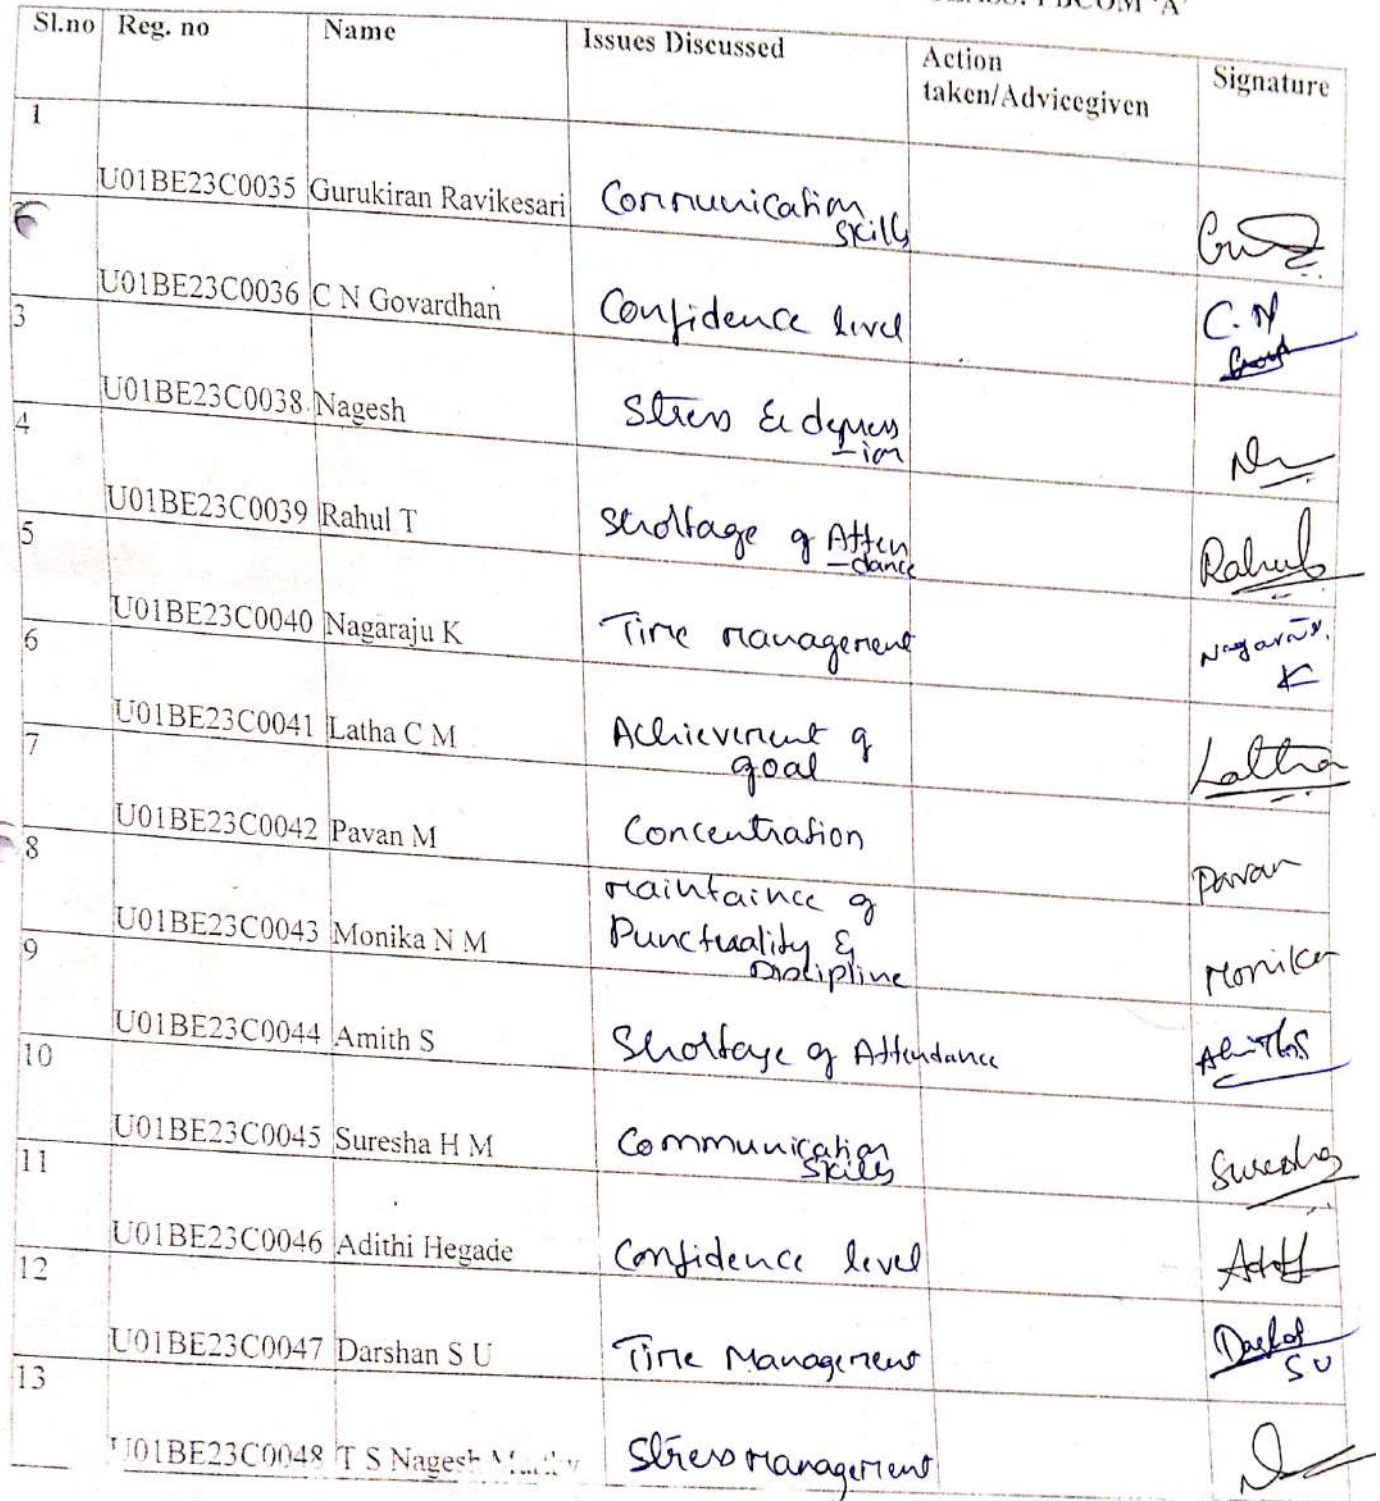 BCOM 'A'
Sl.no Reg. no Name Issues Discussed Action taken/Advicegiven Signature
1
U01BE23C0035 Gurukiran Ravikesari Communication
skills
U01BE23C0036 C N Govardhan Confidence level C. N
3
U01BE23C0038 Nagesh Stress & depress
-ion
4
U01BE23C0039 Rahul T Shortage of Atten
-dance Rahul
5
U01BE23C0040 Nagaraju K Time management
K
6
U01BE23C0041 Latha C M Achievement of
goal Latha
7
U01BE23C0042 Pavan M Concentration Pavan
8
maintaince of
U01BE23C0043 Monika N M Punctuality &
Discipline Monika
9
U01BE23C0044 Amith S Shortage of Attendance
10
U01BE23C0045 Suresha H M Communication
skills Suresha
11
U01BE23C0046 Adithi Hegade Confidence level
12
U01BE23C0047 Darshan S U Time Management
S U
13
U01BE23C0048 T S Nagesh Stress management